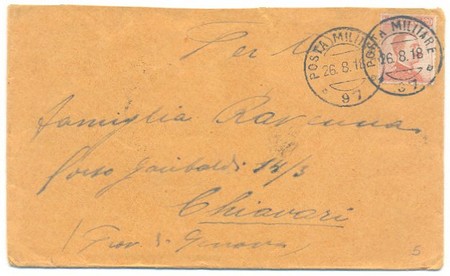 Per M
POSTA MILITARE
26.8.18
97
POSTA MILITARE
26.8.18
97
famiglia Ravenna
Corso Garibaldi 14/3
Chiavari
(Prov. di Genova)
5